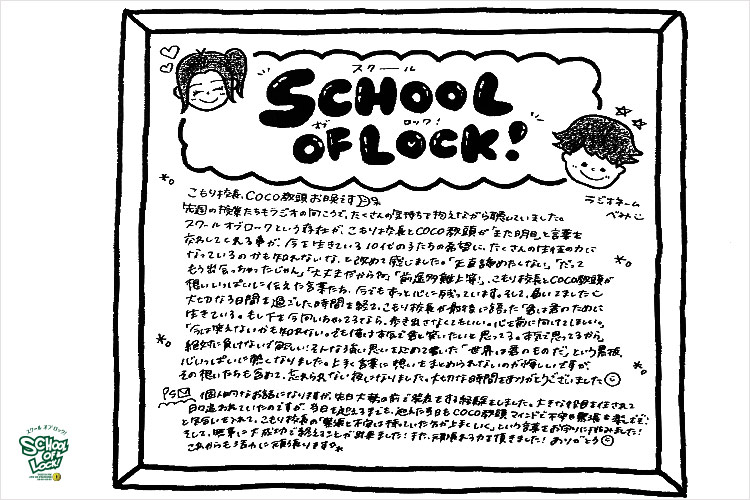 スクール
SCHOOL
オブ ロック!
OF LOCK!
ラジオネーム
べみこ
こもり校長、COCO教頭お疲れ様です
先週の授業たちもラジオの向こうで、たくさんの気持ちを抱えながら聴いていました。
スクールオブロックという存在が、こもり校長とCOCO教頭が「また明日」と言葉を
交わしてくれる事が、今を生きている10代の子たちの希望に、たくさんの生徒の力に
なっているのかも知れないな、と改めて感じました。「正直諦めたくない」「だって
もう出会っちゃったじゃん」「大丈夫だからね」「前途多難上等!」、こもり校長とCOCO教頭が
想いいっぱいに伝えた言葉たち、今でもずっと心に残っています。そして、届いてました
大切なる日間を過ごした時間を経て、こもり校長が最後に語った「君は君のために
生きている。もし下を向いちゃってるなら、歩き出さなくともいい。心を前に向けてほしい。
「今は笑えないかも知れない。でも俺は本気で君と笑いたいと思ってる。本気で思ってるから、
絶対に負けないで欲しい!そんな強い思いを込めて書いた「世界は君のものだ」という黒板、
心いっぱいに熱くなりました。上手く言葉に想いをまとめられないのが悔しいですが、
その想いたちも含めて、忘れられない夜になりました。大切な時間をありがとうございました
PS 個人的なお話になりますが、先日大勢の前で発表をする経験をしました。大きな役目を任されて
日々追われていたのですが、当日を迎えるまでも、迎えた当日もCOCO教頭マインドで不安も緊張も
と自分に言われて、こもり校長の「緊張と不安は持っていた方が上手くいく」という言葉をお守りに挑みました!
そして、無事に大成功で終えることが出来ました!また、頑張る力を頂きました!ありがとう
これからもさらに頑張ります。
スクール オブ ロック!
SCHOOL
OF
LOCK!